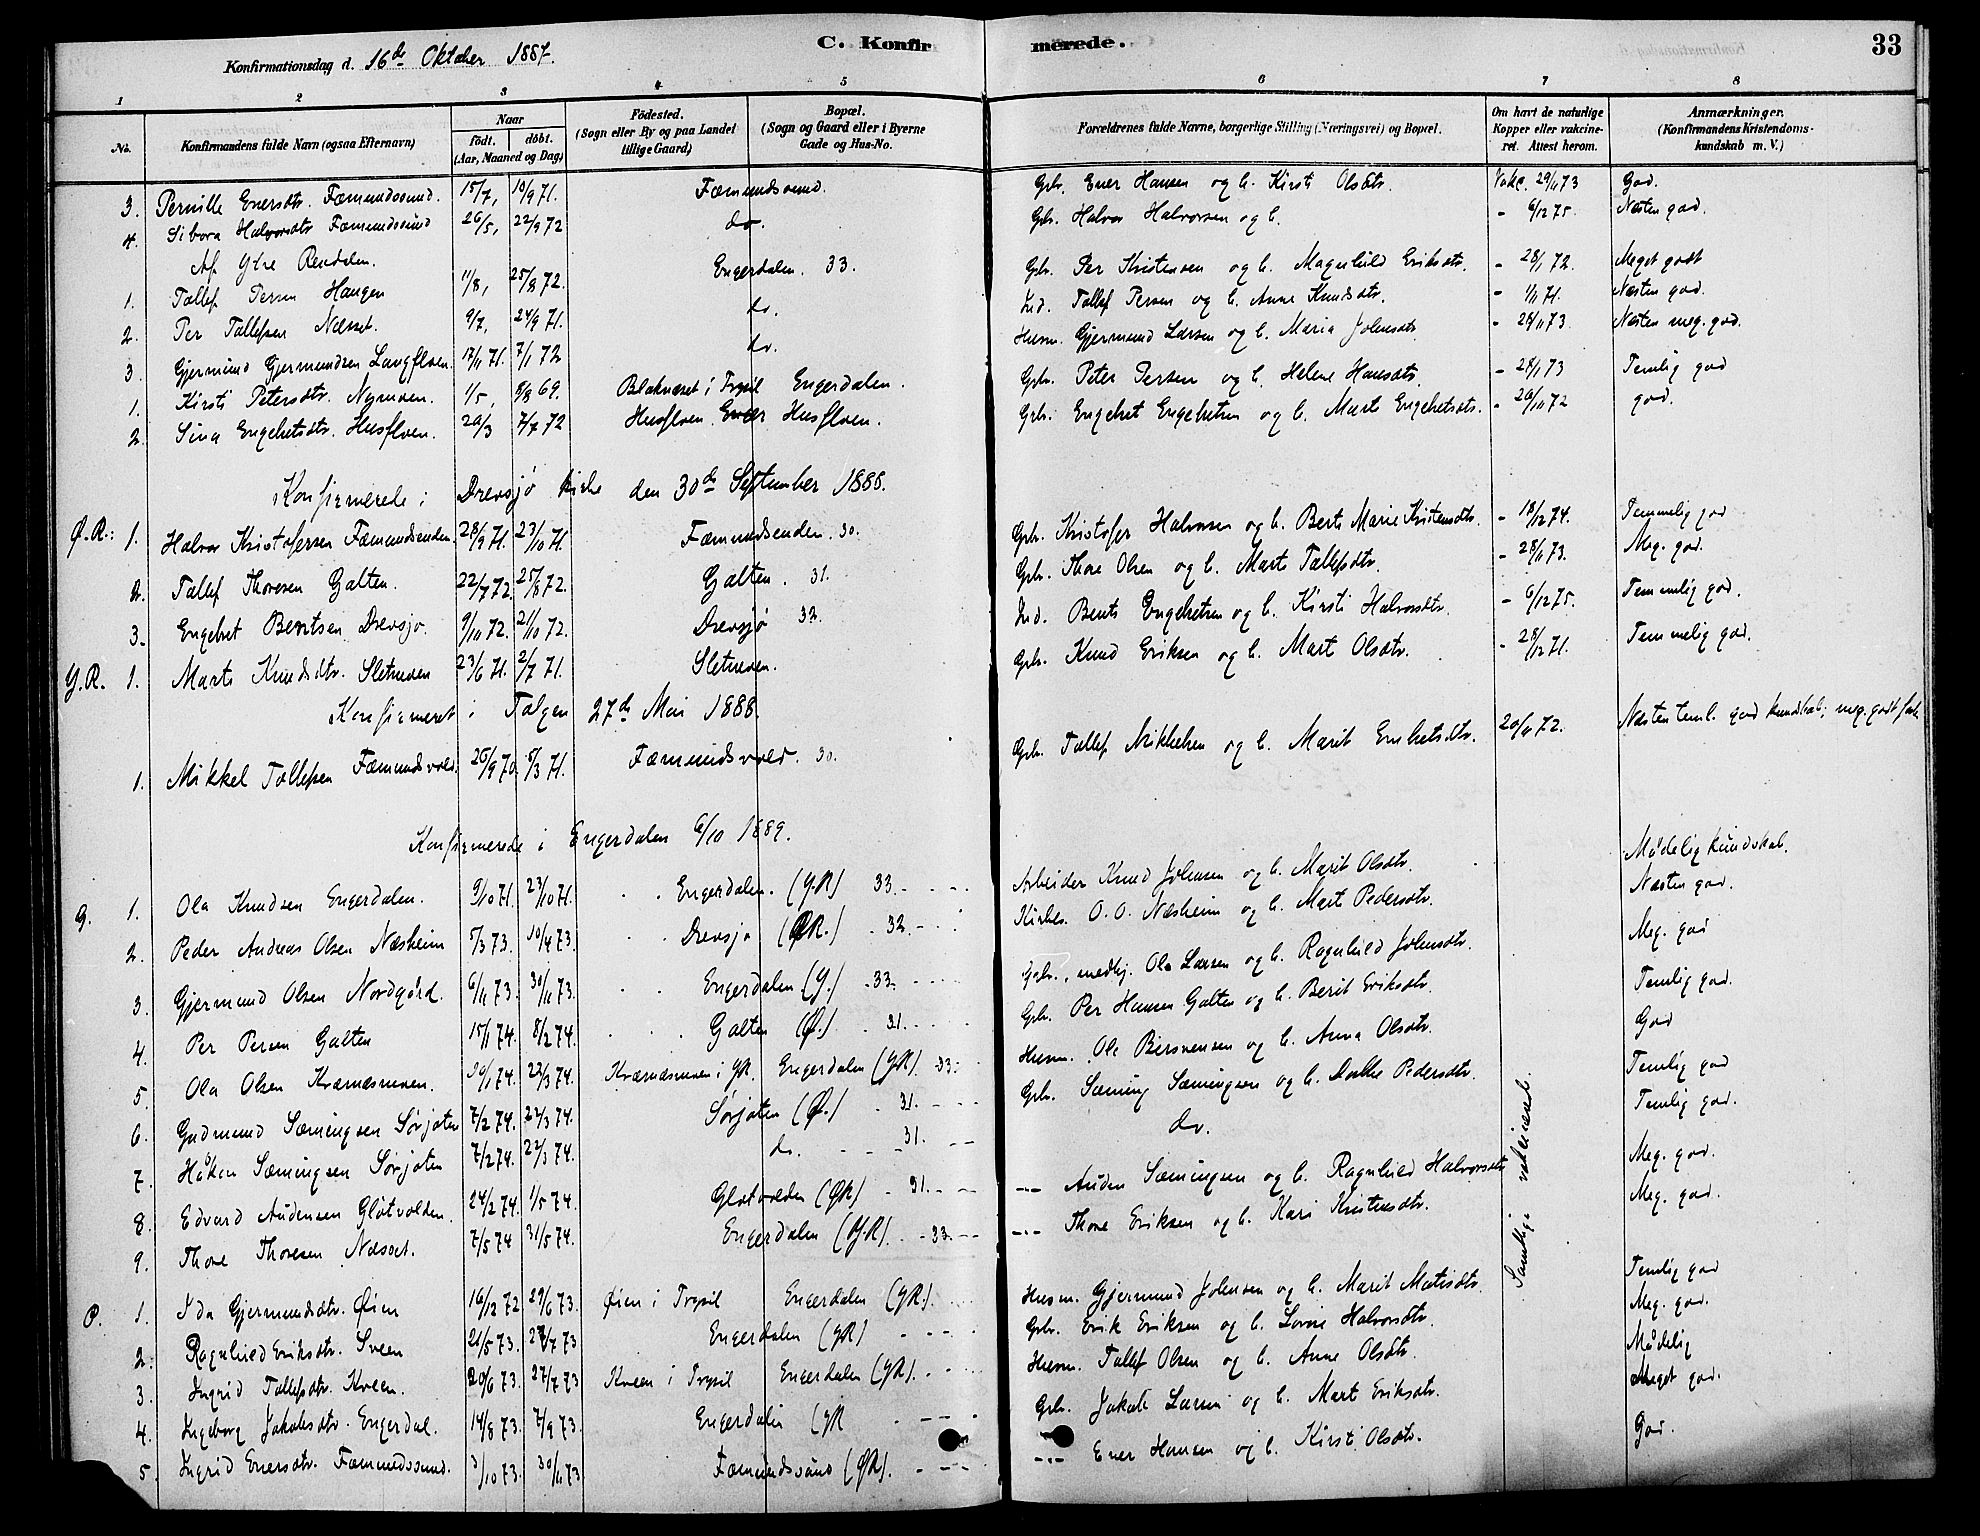 C. Konfirmerede.
33
Konfirmationsdag d. 16de Oktober 1887.
1 2 3 4 5 6 7 8
No. Konfirmandens fulde Navn (ogsaa Efternavn) Naar födt. döbt. (Aar, Maaned og Dag) Födested. (Sogn eller By og paa Landet tillige Gaard) Bopæl. (Sogn og Gaard eller i Byerne Gade og Hus-No. Forældrenes fulde Navne, borgerlige Stilling (Næringsvei) og Bopæl. Om havt de naturlige Kopper eller vakcineret. Attest herom. Anmærkninger. (Konfirmandens Kristendomskundskab m. V.)
3. Pernille Enersdtr. Fæmundssund. 15/7, 10/9 71. Fæmundssund. Gbr. Ener Hansen og h. Kirsti Olsdtr. Vakc. 29/11 73 God.
4. Sibora Halvorsdtr Fæmundssund 26/5, 22/9 72 do. Gbr. Halvor Halvorsen og h. - 6/12 75. Næsten god.
Af Ytre Rendalen.
1. Tollef Persen Haugen 11/8, 25/8 72. Engerdalen. 33. Gbr. Per Kristensen og h. Magnhild Eriksdtr. - 28/1 72. Meget godt
2. Per Tollefsen Næsset. 9/7, 24/9 71. do. Ind. Tollef Persen og h. Anne Knudsdtr. - 1/11 71. Næsten god.
3. Gjermund Gjermundsen Langfloen. 17/11 71. 7/1 72 do. Husm. Gjermund Larsen og h. Maria Johnsdtr - 28/11 73. Næsten meg. god.
1. Kirsti Petersdtr. Nymoen. 1/5, 8/8 69. Blaknæset i Trysil Engerdalen. Gbr. Peter Persen og h. Helene Hansdtr. - 28/1 73 Temlig god
2. Sina Engebretsdtr. Husfloen. 20/3 7/7 72 Husfloen Husfloen. Gbr. Engebret Engebretsen og h. Marte Engebretsdtr. - 26/11 72 god.
Konfirmerede i Drevsjø kirke den 30de September 1888.
Ø.R.: 1. Halvor Kristofersen Fæmundsenden. 28/9 71. 23/10 71. Fæmundsenden. 30. Gbr. Kristofer Halvorsen og h. Berte Marie Kristensdtr. - 18/12 74. Temmelig god
2. Tollef Thoresen Galten. 22/7 72. 25/8 72. Galten. 31. Gbr. Thore Olsen og h. Marte Tollefsdtr. - 28/11 73. Meg. god.
3. Engebret Bentsen Drevsjø. 9/10 72. 21/10 72. Drevsjø 32. Ind. Bent Engebretsen og h. Kirsti Halvorsdtr. - 6/12 75. Temmelig god.
Y.R. 1. Marte Knudsdtr. Sletmoen 23/6 71. 2/7 71. Sletmoen. Gbr. Knud Eriksen og h. Mart Olsdtr. - 28/12 71. Temmelig god.
Konfirmeret i Tolgen 27de Mai 1888.
1. Mikkel Tollefsen Fæmundsvold. 26/9 70. 5/3 71. Fæmundsvold. 30. Gbr. Tollef Mikkelsen og h. Marit Embretsdtr. 20/11 72. Næsten teml. god kundskab; meg. godt
Konfirmerede i Engerdalen 6/10 1889.
G. 1. Ola Knudsen Engerdalen. 9/10 71. 23/10 71. Engerdalen. (Y.R) 33. Arbeider Knud Johnsen og h. Marit Olsdtr. Mådelig kundskab.
2. Peder Andreas Olsen Næsheim 5/3 73. 10/4 73. Drevsjø (ØR.) 32. Kirkes. O. O. Næsheim og h. Mart Pedersdtr. Næsten god.
3. Gjermund Olsen Nordgård. 6/11 73. 30/11 73. Engerdalen (Y.) 33. Gbr., medhj. Ola Larsen og h. Ragnhild Johnsdtr. Meg. god
4. Per Persen Galten 15/1 74. 8/2 74. Galten (Ø.) 31. Gbr. Per Hansen Galten og h. Berit Eriksdtr. Temlig god.
5. Ola Olsen Kværnæsmoen. 20/1 74. 22/3 74. Kværnæsmoen i YR. Engerdalen (YR). 33. Husm. Ole Bersvensen og h. Anna Olsdtr. God
6. Gudmund Sæmingsen Sørjoten 7/2 74. 22/3 74. Sørjoten (Ø.) 31. Gbr. Sæming Sæmingsen og h. Dorthe Pedersdtr. Temlig god
7. Håkon Sæmingsen Sørjoten 7/2 74. 22/3 74. do. 31. do. Temlig god.
8. Edvard Audensen Gløtvolden. 24/2 74. 1/5 74. Gløtvolden (ØR) 31. --- Auden Sæmingsen og h. Ragnhild Halvorsdtr Meg. god.
9. Thore Thoresen Næsset. 7/5 74 31/5 74. Engerdalen (Y.R). 33. --- Thore Eriksen og h. Kari Kristensdtr. Meg. god.
Samtlige vakcinerede.
P. 1. Ida Gjermundsdtr. Øien 16/12 72 29/6 73. Øien i Trysil Engerdalen (YR). Husm. Gjermund Johnsen og h. Marit Matisdtr. Temlig god
2. Ragnhild Eriksdtr. Sveen 21/5 73. 27/7 73 Engerdalen (YR) Gbr. Erik Eriksen og h. Lovise Halvorsdtr. Meg. god.
3. Ingrid Tollefsdtr. Kveen. 20/6 73. 27/7 73 Kveen i Trysil Engerdalen (YR). Husm. Tollef Olsen og h. Anne Olsdtr. Mådelig
4. Ingeborg Jakobsdtr. Engerdal. 14/8 73. 7/9 73. Engerdalen (YR Gbr. Jakob Larsen og h. Mart Eriksdtr. Meget god.
5. Ingrid Enersdtr. Fæmundssund. 3/10 73. 30/11 73 Fæmundssund (ØR). --- Ener Hansen og h. Kirsti Olsdtr. God.